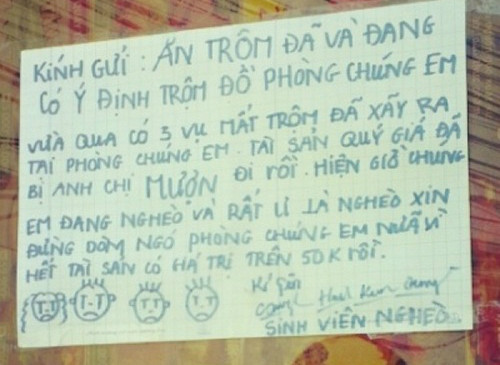 KÍNH GỬI : ĂN TRỘM ĐÃ VÀ ĐANG
CÓ Ý ĐỊNH TRỘM ĐỒ PHÒNG CHÚNG EM
VỪA QUA CÓ 3 VỤ MẤT TRỘM ĐÃ XẢY RA
TẠI PHÒNG CHÚNG EM. TÀI SẢN QUÝ GIÁ ĐÃ
BỊ ANH CHỊ MƯỢN ĐI RỒI. HIỆN GIỜ CHÚNG
EM ĐANG NGHÈO VÀ RẤT LÀ NGHÈO XIN
ĐỪNG DÒM NGÓ PHÒNG CHÚNG EM NỮA VÌ
HẾT TÀI SẢN CÓ GIÁ TRỊ TRÊN 50K RỒI.
Kí
SINH VIÊN NGHÈO